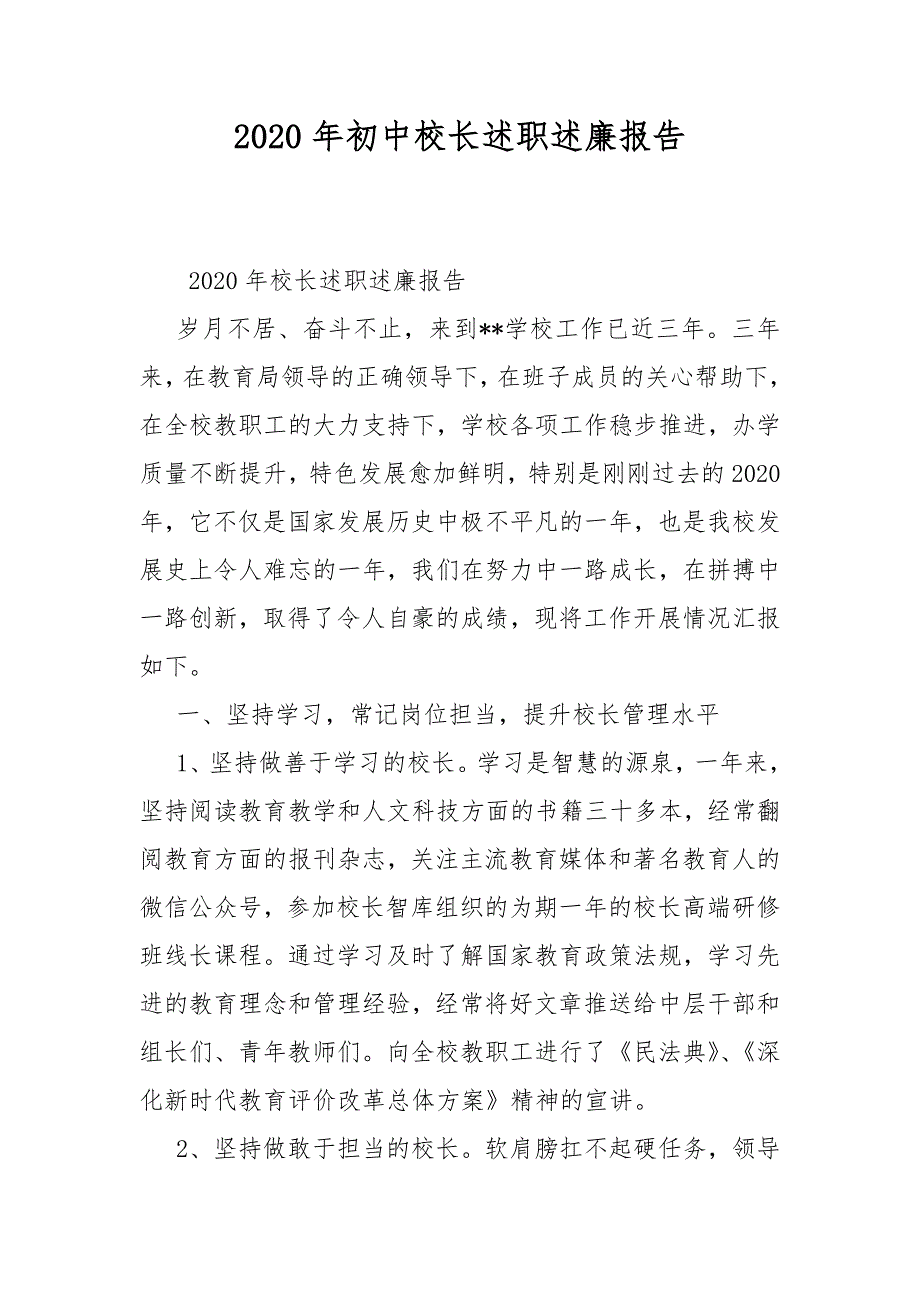 2020 年初中校长述职述廉报告
2020 年校长述职述廉报告
岁月不居、奋斗不止，来到**学校工作已近三年。三年
来，在教育局领导的正确领导下，在班子成员的关心帮助下，
在全校教职工的大力支持下，学校各项工作稳步推进，办学
质量不断提升，特色发展愈加鲜明，特别是刚刚过去的 2020
年，它不仅是国家发展历史中极不平凡的一年，也是我校发
展史上令人难忘的一年，我们在努力中一路成长，在拼搏中
一路创新，取得了令人自豪的成绩，现将工作开展情况汇报
如下。
一、坚持学习，常记岗位担当，提升校长管理水平
1、坚持做善于学习的校长。学习是智慧的源泉，一年来，
坚持阅读教育教学和人文科技方面的书籍三十多本，经常翻
阅教育方面的报刊杂志，关注主流教育媒体和著名教育人的
微信公众号，参加校长智库组织的为期一年的校长高端研修
班线长课程。通过学习及时了解国家教育政策法规，学习先
进的教育理念和管理经验，经常将好文章推送给中层干部和
组长们、青年教师们。向全校教职工进行了《民法典》、《深
化新时代教育评价改革总体方案》精神的宣讲。
2、坚持做敢于担当的校长。软肩膀扛不起硬任务，领导